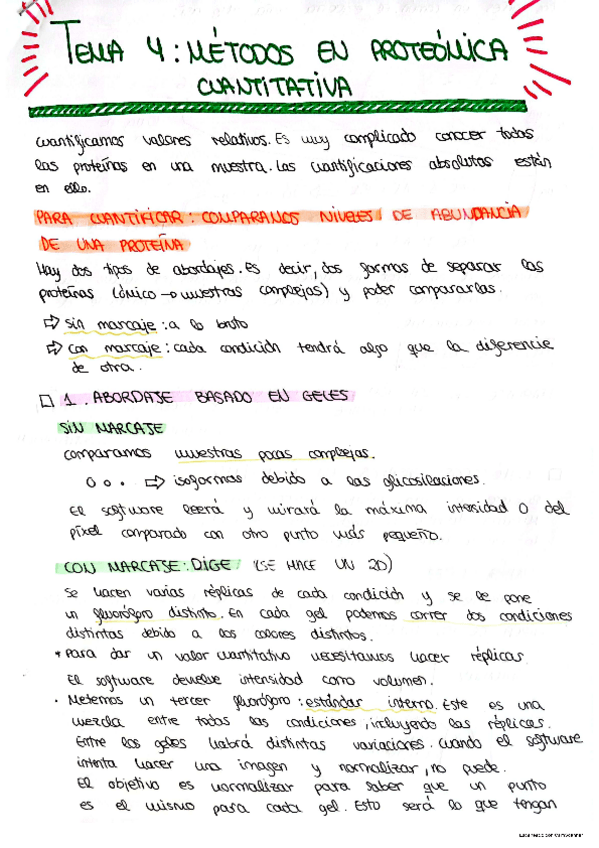 TEMA 4: MÉTODOS EN PROTEÓMICA
CUANTITATIVA
cuantificamos valores relativos. Es muy complicado conocer todas
las proteínas en una muestra. Las cuantificaciones absolutas están
en ello.
PARA CUANTIFICAR: COMPARAMOS NIVELES DE ABUNDANCIA
DE UNA PROTEÍNA
Hay dos tipos de abordajes. Es decir, dos formas de separar las
proteínas (ómico → muestras complejas) y poder compararlas.
⇨ Sin marcaje: a lo bruto
⇨ Con marcaje: cada condición tendrá algo que la diferencie
de otra.
□ 1. ABORDAJE BASADO EN GELES
SIN MARCAJE
comparamos muestras pocas complejas.
⇨ isoformas debido a las glicosilaciones.
El software leerá y mirará la máxima intensidad o del
píxel comparado con otro punto más pequeño.
CON MARCAJE: DIGE (SE HACE UN 2D)
Se hacen varias réplicas de cada condición y se le pone
un fluoróforo distinto. En cada gel podemos correr dos condiciones
distintas debido a los colores distintos.
* Para dar un valor cuantitativo necesitamos hacer réplicas.
El software devuelve intensidad como volumen.
• Metemos un tercer fluoróforo: estándar interno. Este es una
mezcla entre todas las condiciones, incluyendo las réplicas.
Entre los geles habrá distintas variaciones. Cuando el software
intenta hacer una imagen y normalizar, no puede.
El objetivo es normalizar para saber que un punto
es el mismo para cada gel. Esto será lo que tengan